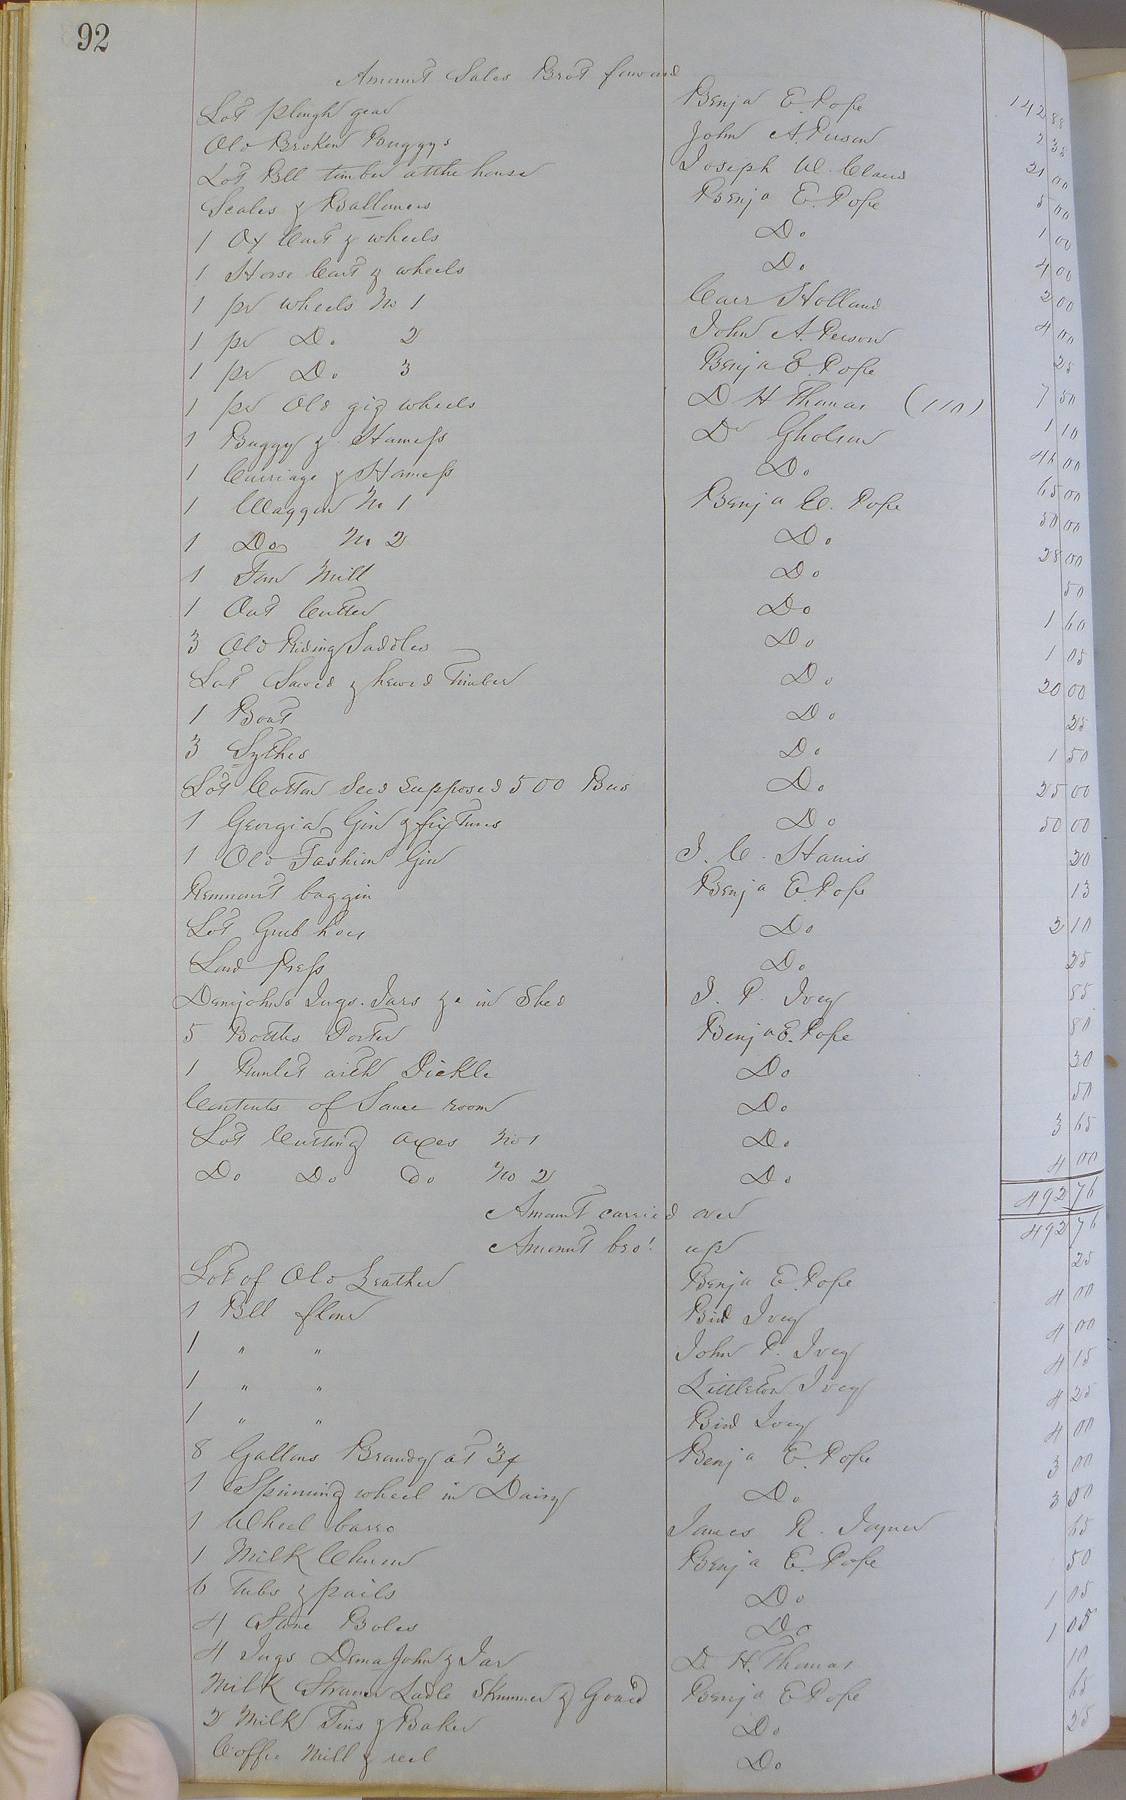 92
Amount Sales Brot forward 142 88
Lot plough gear Benja E. Pope 2 35
Old Broken Buggys John A. Person 21 00
Lot Bll timber at the house Joseph W. Claud 5 00
Scales & Ballances Benja E. Pope 1 00
1 Ox Cart & wheels Do 4 00
1 Horse Cart & wheels Do 2 00
1 pr wheels No 1 Carr Holland 4 00
1 pr Do. 2 John A. Person 25
1 pr Do 3 Benja E. Pope 7 50
1 pr Old gig wheels D H Thomas (110) 1 10
1 Buggy & Harness Dr Gholson 46 00
1 Carriage & Harness Do. 65 00
1 Waggon No 1 Benja E. Pope 50 00
1 Do No 2 Do 28 00
1 Fan Mill Do 50
1 Oat Cutter Do 1 60
3 Old Riding Saddles Do 1 05
Lot Sawed & hewed Timber Do 20 00
1 Boat Do 25
3 Sythes Do 1 50
Lot Cotton Seed supposed 500 Bus Do. 25 00
1 Georgia Gin & fixtures Do 50 00
1 Old Fashion Gin J. C. Harris 20
Remnant baggin Benja E. Pope 13
Lot Grub hoes Do 2 10
Lard Press Do. 25
Demijohns Jugs. Jars &c in Shed J. P. Ivey 85
5 Bottles Porter Benja E. Pope 80
1 Runlet with Pickle Do 20
Contents of Sauce room Do 50
Lot Cutting axes No 1 Do. 3 65
Do Do Do No 2 Do. 4 00
Amount carried over 492 76
Amount bro! up 492 76
Lot of Old Leather Benja E. Pope 25
1 Bll flour Bird Ivey 4 00
1 " " John P. Ivey 4 00
1 " " Littleton Ivey 4 15
1 " " Bird Ivey 4 25
8 Gallons Brandy at 3/ Benja E. Pope 4 00
1 Spinning wheel in Dairy Do. 3 00
1 Wheel barro James R. Joyner 3 00
1 Milk Churn Benja E. Pope 65
6 Tubs & pails Do 50
4 Stone Boles Do 1 05
4 Jugs Dema John & Jar D. H. Thomas 1 05
Milk Strainer Ladle Skimmer & Gourd Benja E Pope 10
2 Milk Tins & Baker Do 65
Coffee Mill & reel Do 25